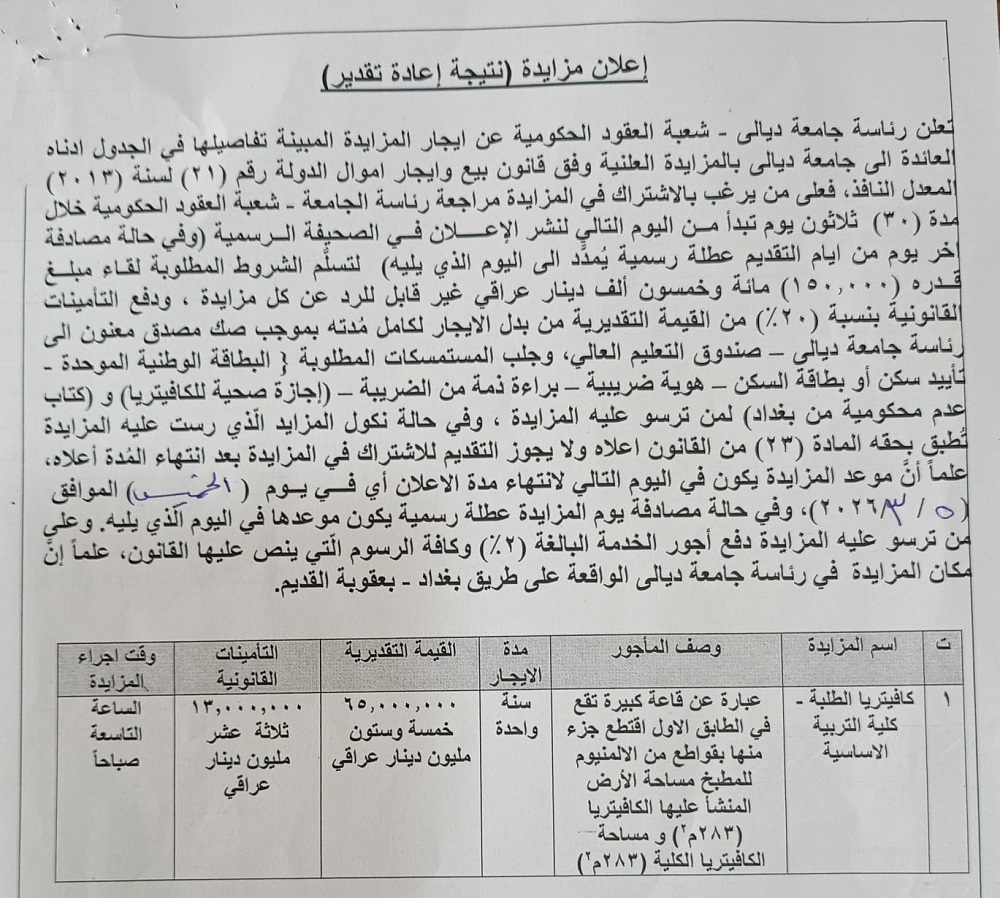 إعلان مزايدة (نتيجة إعادة تقدير)
تعلن رئاسة جامعة ديالى - شعبة العقود الحكومية عن ايجار المزايدة المبينة تفاصيلها في الجدول ادناه
العائدة الى جامعة ديالى بالمزايدة العلنية وفق قانون بيع وايجار اموال الدولة رقم (٢١) لسنة (٢٠١٣)
المعدل النافذ، فعلى من يرغب بالاشتراك في المزايدة مراجعة رئاسة الجامعة - شعبة العقود الحكومية خلال
مدة (٣٠) ثلاثون يوم تبدأ مـن اليوم التالي لنشر الإعـــلان فـي الصحيفة الـرسمية (وفي حالة مصادفة
اخر يوم من ايام التقديم عطلة رسمية يُمدَّد الى اليوم الذي يليه) لتسلّم الشروط المطلوبة لقاء مبلـغ
قـدره (١٥٠,٠٠٠) مائة وخمسون ألف دينار عراقي غير قابل للرد عن كل مزايدة ، ودفع التأمينات
القانونية بنسبة (٢٠٪) من القيمة التقديرية من بدل الايجار لكامل مُدته بموجب صك مصدق معنون الى
رئاسة جامعة ديالى – صندوق التعليم العالي، وجلب المستمسكات المطلوبة { البطاقة الوطنية الموحدة -
تأييد سكن أو بطاقة السكن – هوية ضريبية – براءة ذمة من الضريبة – (إجازة صحية للكافيتريا) و (كتاب
عدم محكومية من بغداد) لمن ترسو عليه المزايدة ، وفي حالة نكول المزايد الّذي رست عليه المزايدة
تُطبق بحقه المادة (٢٣) من القانون اعلاه ولا يجوز التقديم للاشتراك في المزايدة بعد انتهاء المُدة أعلاه،
علماً أنَّ موعد المزايدة يكون في اليوم التالي لانتهاء مدة الاعلان أي فــي يـوم ( الخميس ) الموافق
(٥ / ٣ / ٢٠٢٦)، وفي حالة مصادفة يوم المزايدة عطلة رسمية يكون موعدها في اليوم الّذي يليه. وعلى
من ترسو عليه المزايدة دفع أجور الخدمة البالغة (٢٪) وكافة الرسوم الّتي ينص عليها القانون، علماً إنَّ
مكان المزايدة في رئاسة جامعة ديالى الواقعة على طريق بغداد - بعقوبة القديم.
ت اسم المزايدة وصف المأجور مدة الايجار القيمة التقديرية التأمينات القانونية وقت اجراء المزايدة
١ كافيتريا الطلبة - عبارة عن قاعة كبيرة تقع سنة ٦٥,٠٠٠,٠٠٠ ١٣,٠٠٠,٠٠٠ الساعة
كلية التربية في الطابق الاول اقتطع جزء واحدة خمسة وستون ثلاثة عشر التاسعة
الاساسية منها بقواطع من الالمنيوم مليون دينار عراقي مليون دينار صباحاً
للمطبخ مساحة الأرض عراقي
المنشأ عليها الكافيتريا
(٢٨٣م٢) و مساحة
الكافيتريا الكلية (٢٨٣م٢)